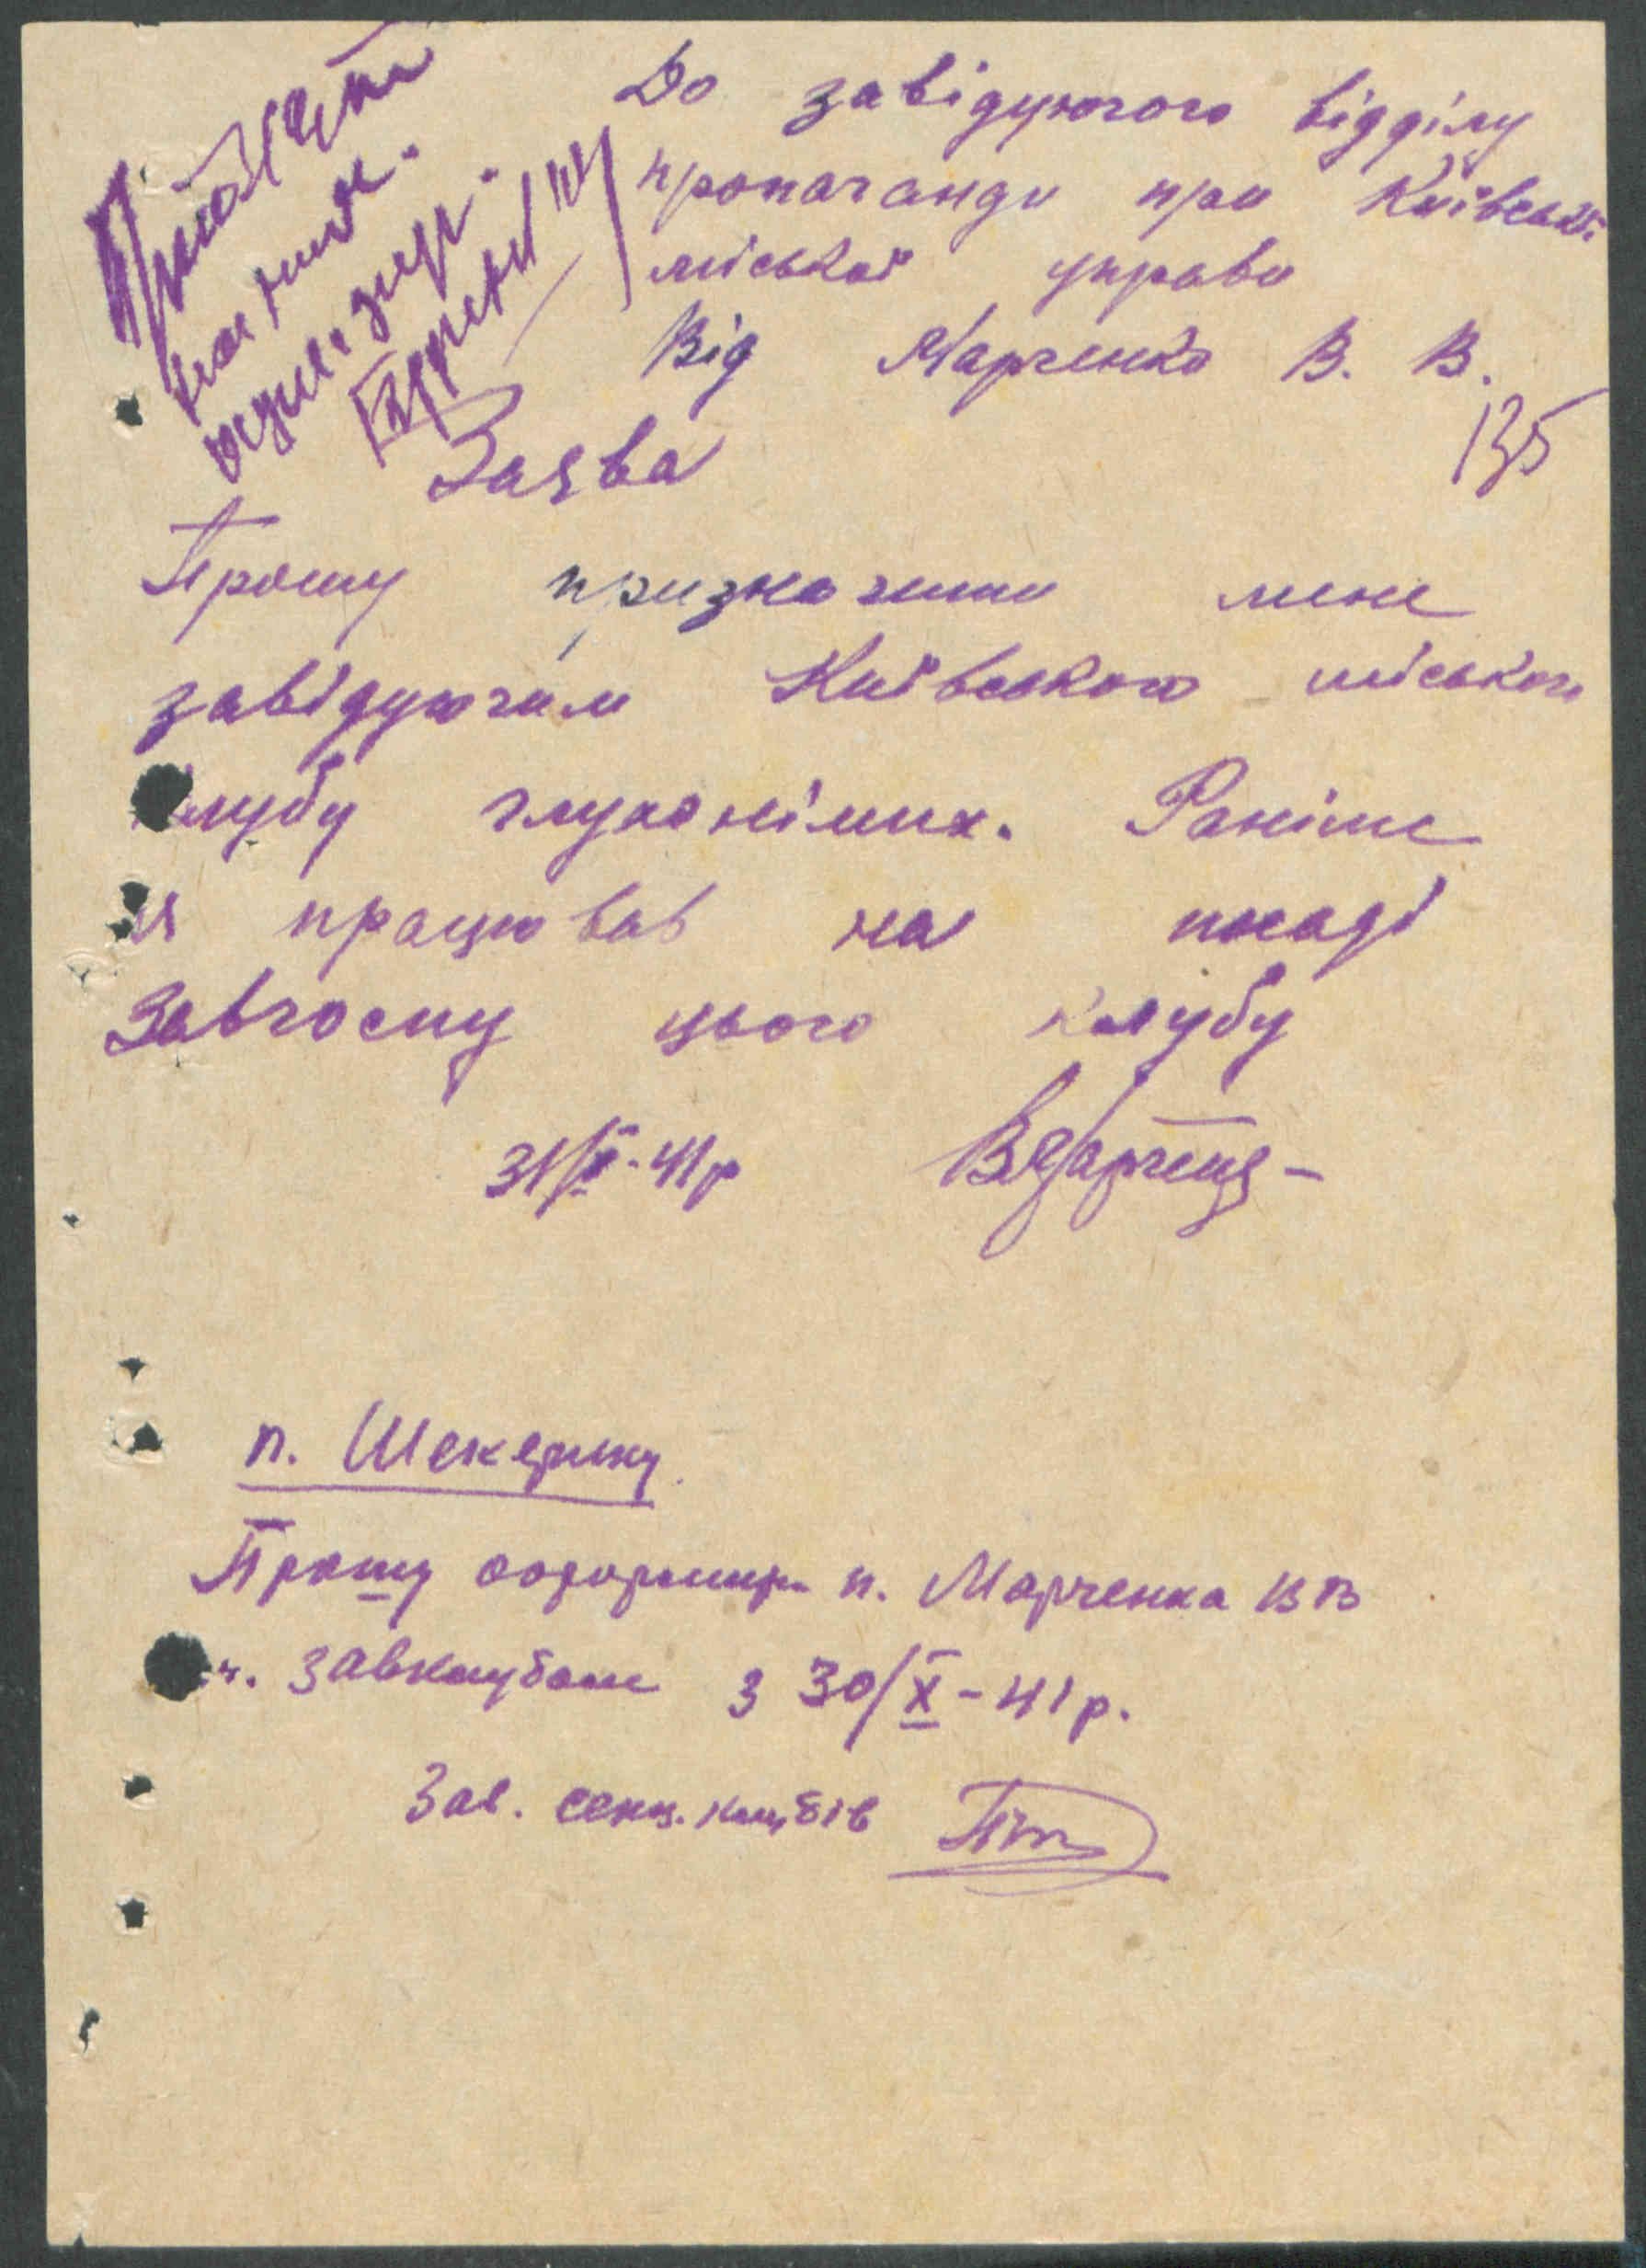 До завідуючого відділу
пропаганди при Київськ.
міської управи
Від Марченко В. В.
135
Заява
Прошу призначити мене
завідуючим Київського міського
клубу глухонімих. Раніше
я працював на посаді
Завгоспу цього клубу
31/X-41р
п. Шекерину
Прошу оформити п. Марченка ВВ
завклубом з 30/X-41р.
Зав. секц. клубів